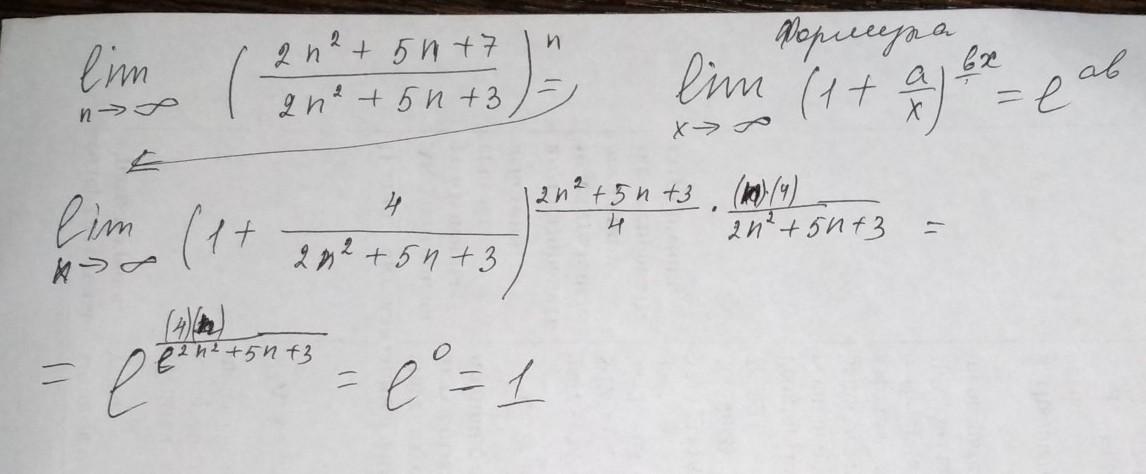 lim n→∞ ( (2n² + 5n + 7) / (2n² + 5n + 3) )ⁿ =
Формула
lim x→∞ (1 + a/x)^(bx) = e^(ab)
lim n→∞ (1 + 4 / (2n² + 5n + 3))^((2n² + 5n + 3)/4 · ((n)·(4))/(2n² + 5n + 3)) =
= e^((4)(n) / e^(2n² + 5n + 3)) = e⁰ = 1